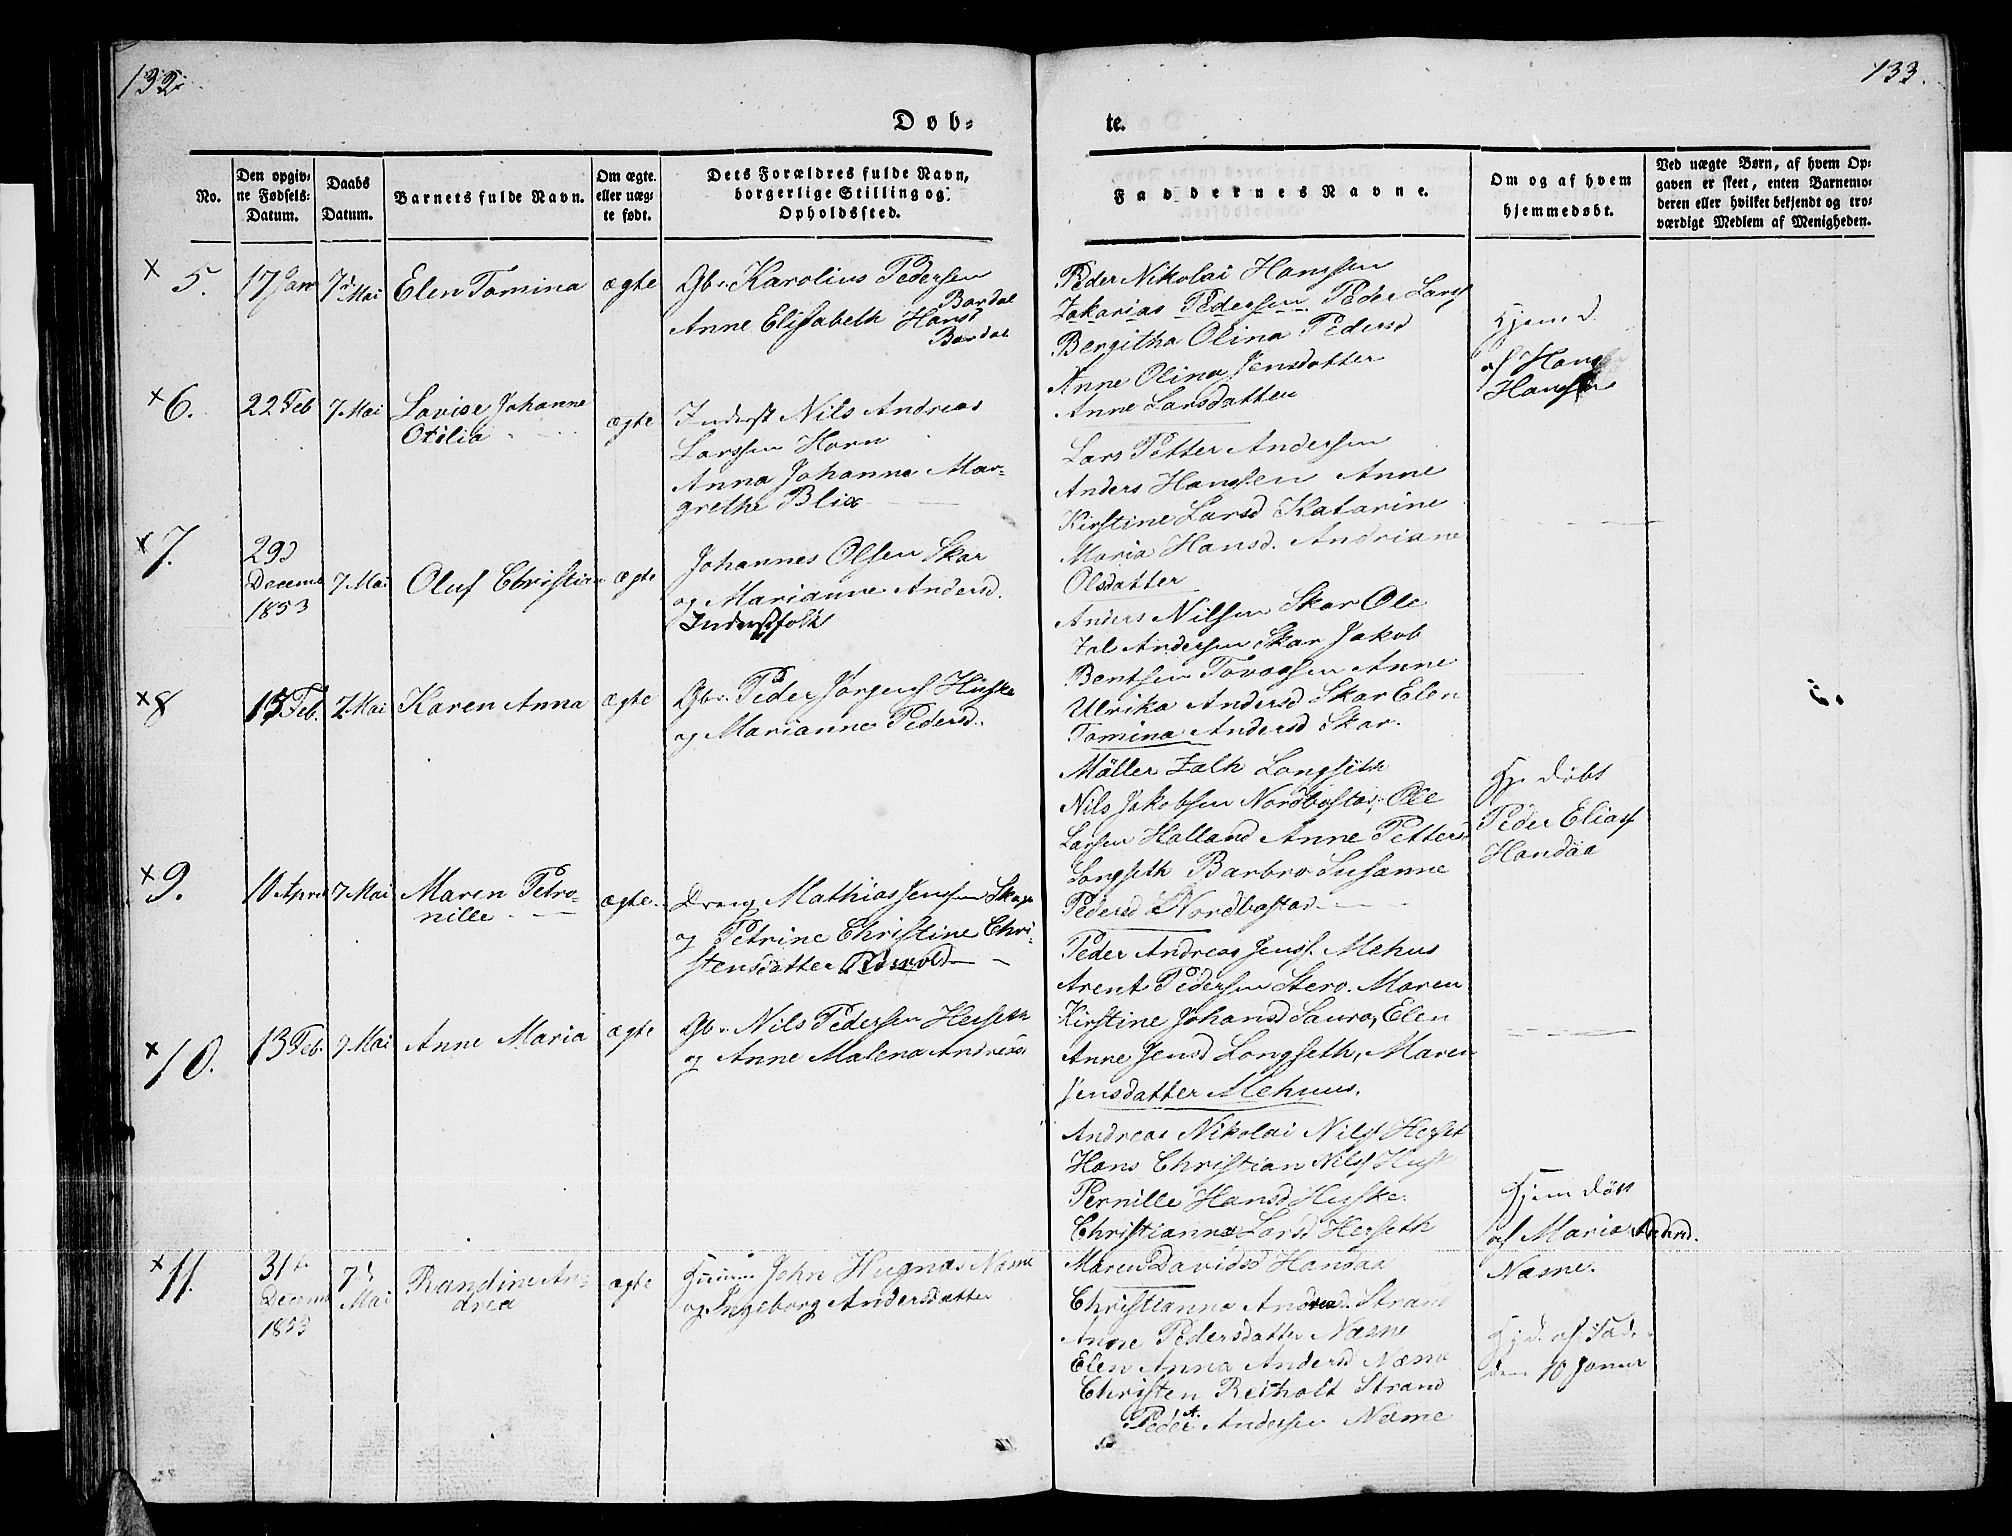 132.
133.
Døb-
te.
No.
Den opgiv-
ne Fødsels-
Datum.
Daabs
Datum.
Barnets fulde Navn.
Om ægte
eller uæg-
te født.
Dets Forældres fulde Navn,
borgerlige Stilling og
Opholdssted.
Faddernes Navne.
Om og af hvem
hjemmedøbt.
Ved uægte Børn, af hvem Op-
gaven er skeet, enten Barnemo-
deren eller hvilket bekjendt og tro-
værdigt Medlem af Menigheden.
x 5.
17 Jan
7d Mai
Elen Tomina
ægte
Gbr. Karolius Pedersen
Bardal
Anne Elisabeth Hansd
Bardal
Peder Nikolai Hanssen
Zakarias Pedersen Peder Larss
Bergitha Olina Pedersd
Anne Olina Jensdatter
Anne Larsdatter
Hjemd
af Hans
Hanssen
x 6.
22 Feb
7 Mai
Lovise Johanne
Otilia
ægte
Inderst Nils Andreas
Larssen Horn
Anna Johanna Mar-
grethe Blix
Lars Petter Andersen
Anders Hanssen Anne
Kirstine Larsd Katarine
Maria Hansd. Andriane
Olsdatter
x 7.
29d
Decemb
1853
7 Mai
Oluf Christian
ægte
Johannes Olsen Skar
og Marianne Andersd.
Inderstfolk
Anders Nilsen Skar Ole
Andersen Skar Jakob
Bentsen Anne
Ulrika Andersd Skar Elen
Tomina Andersd Skar.
x 8
15 Feb.
7 Mai
Karen Anna
ægte
Gbr. Peder Jørgens Huske
og Marianne Pedersd.
Møller Falk Longseth
Nils Jakobsen Nordbostad, Ole
Larsen Halland Anne Petters
Longseth Barbro Susanne
Pedersd Nordbostad
Hje døbt
Peder Eliass
Handaa
x 9.
10 April
7 Mai
Maren Petro-
nille
ægte.
Dreng Mathias Jenssen
og Petrine Christine Chri-
stensdatter
Peder Andreas Jenss. Mehus
Arent Pedersen Stero. Maren
Kirstine Johansd Saura, Elen
Anne Jensd Longseth, Maren
Jensdatter Mehuus.
x 10.
13 Feb.
7 Mai
Anne Maria
ægte
Gbr. Nils Pedersen Herseth
og Anne Malena Andreasd
Andreas Nikolai Nilss Herset
Hans Christian Nilss
Pernille Hansd Huske.
Christianna Larsd Herseth
Maren Davidsd Handaa
Hjem døbt
af Maria
Næsne.
x 11.
31te
Decemb
1853
7d
Mai
Randine An-
drea
ægte
John Hugnas Næsne
og Ingeborg Andersdatter
Christianna Strand
Anne Pedersdatter Næsne
Elen Anna Andersd Næsne
Christen Reiholt Strand
Peder A. Andersen Næsne
Hjd. af Fad.
den 10 Januar